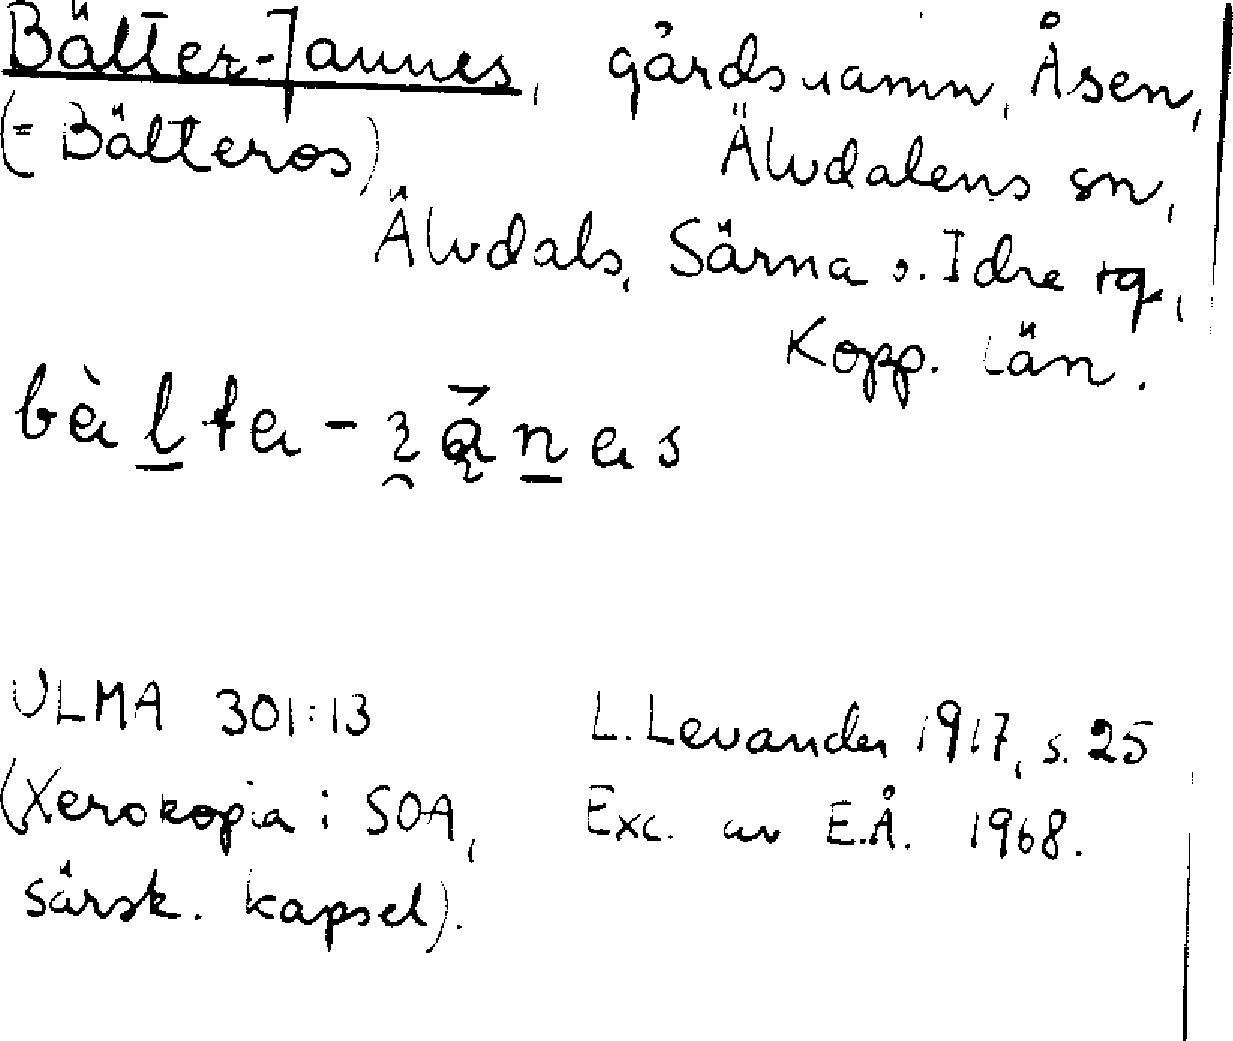 Bälter-Jannes, gårdsnamn, Åsen,
(= Bälteros) Älvdalens sn,
Älvdals, Särna o. Idre tg,
Kopp. län.
ULMA 301:13 L. Levander 1917, s. 25
(Xerokopia i SOA, Exc. av E.Å. 1968.
särsk. kapsel).